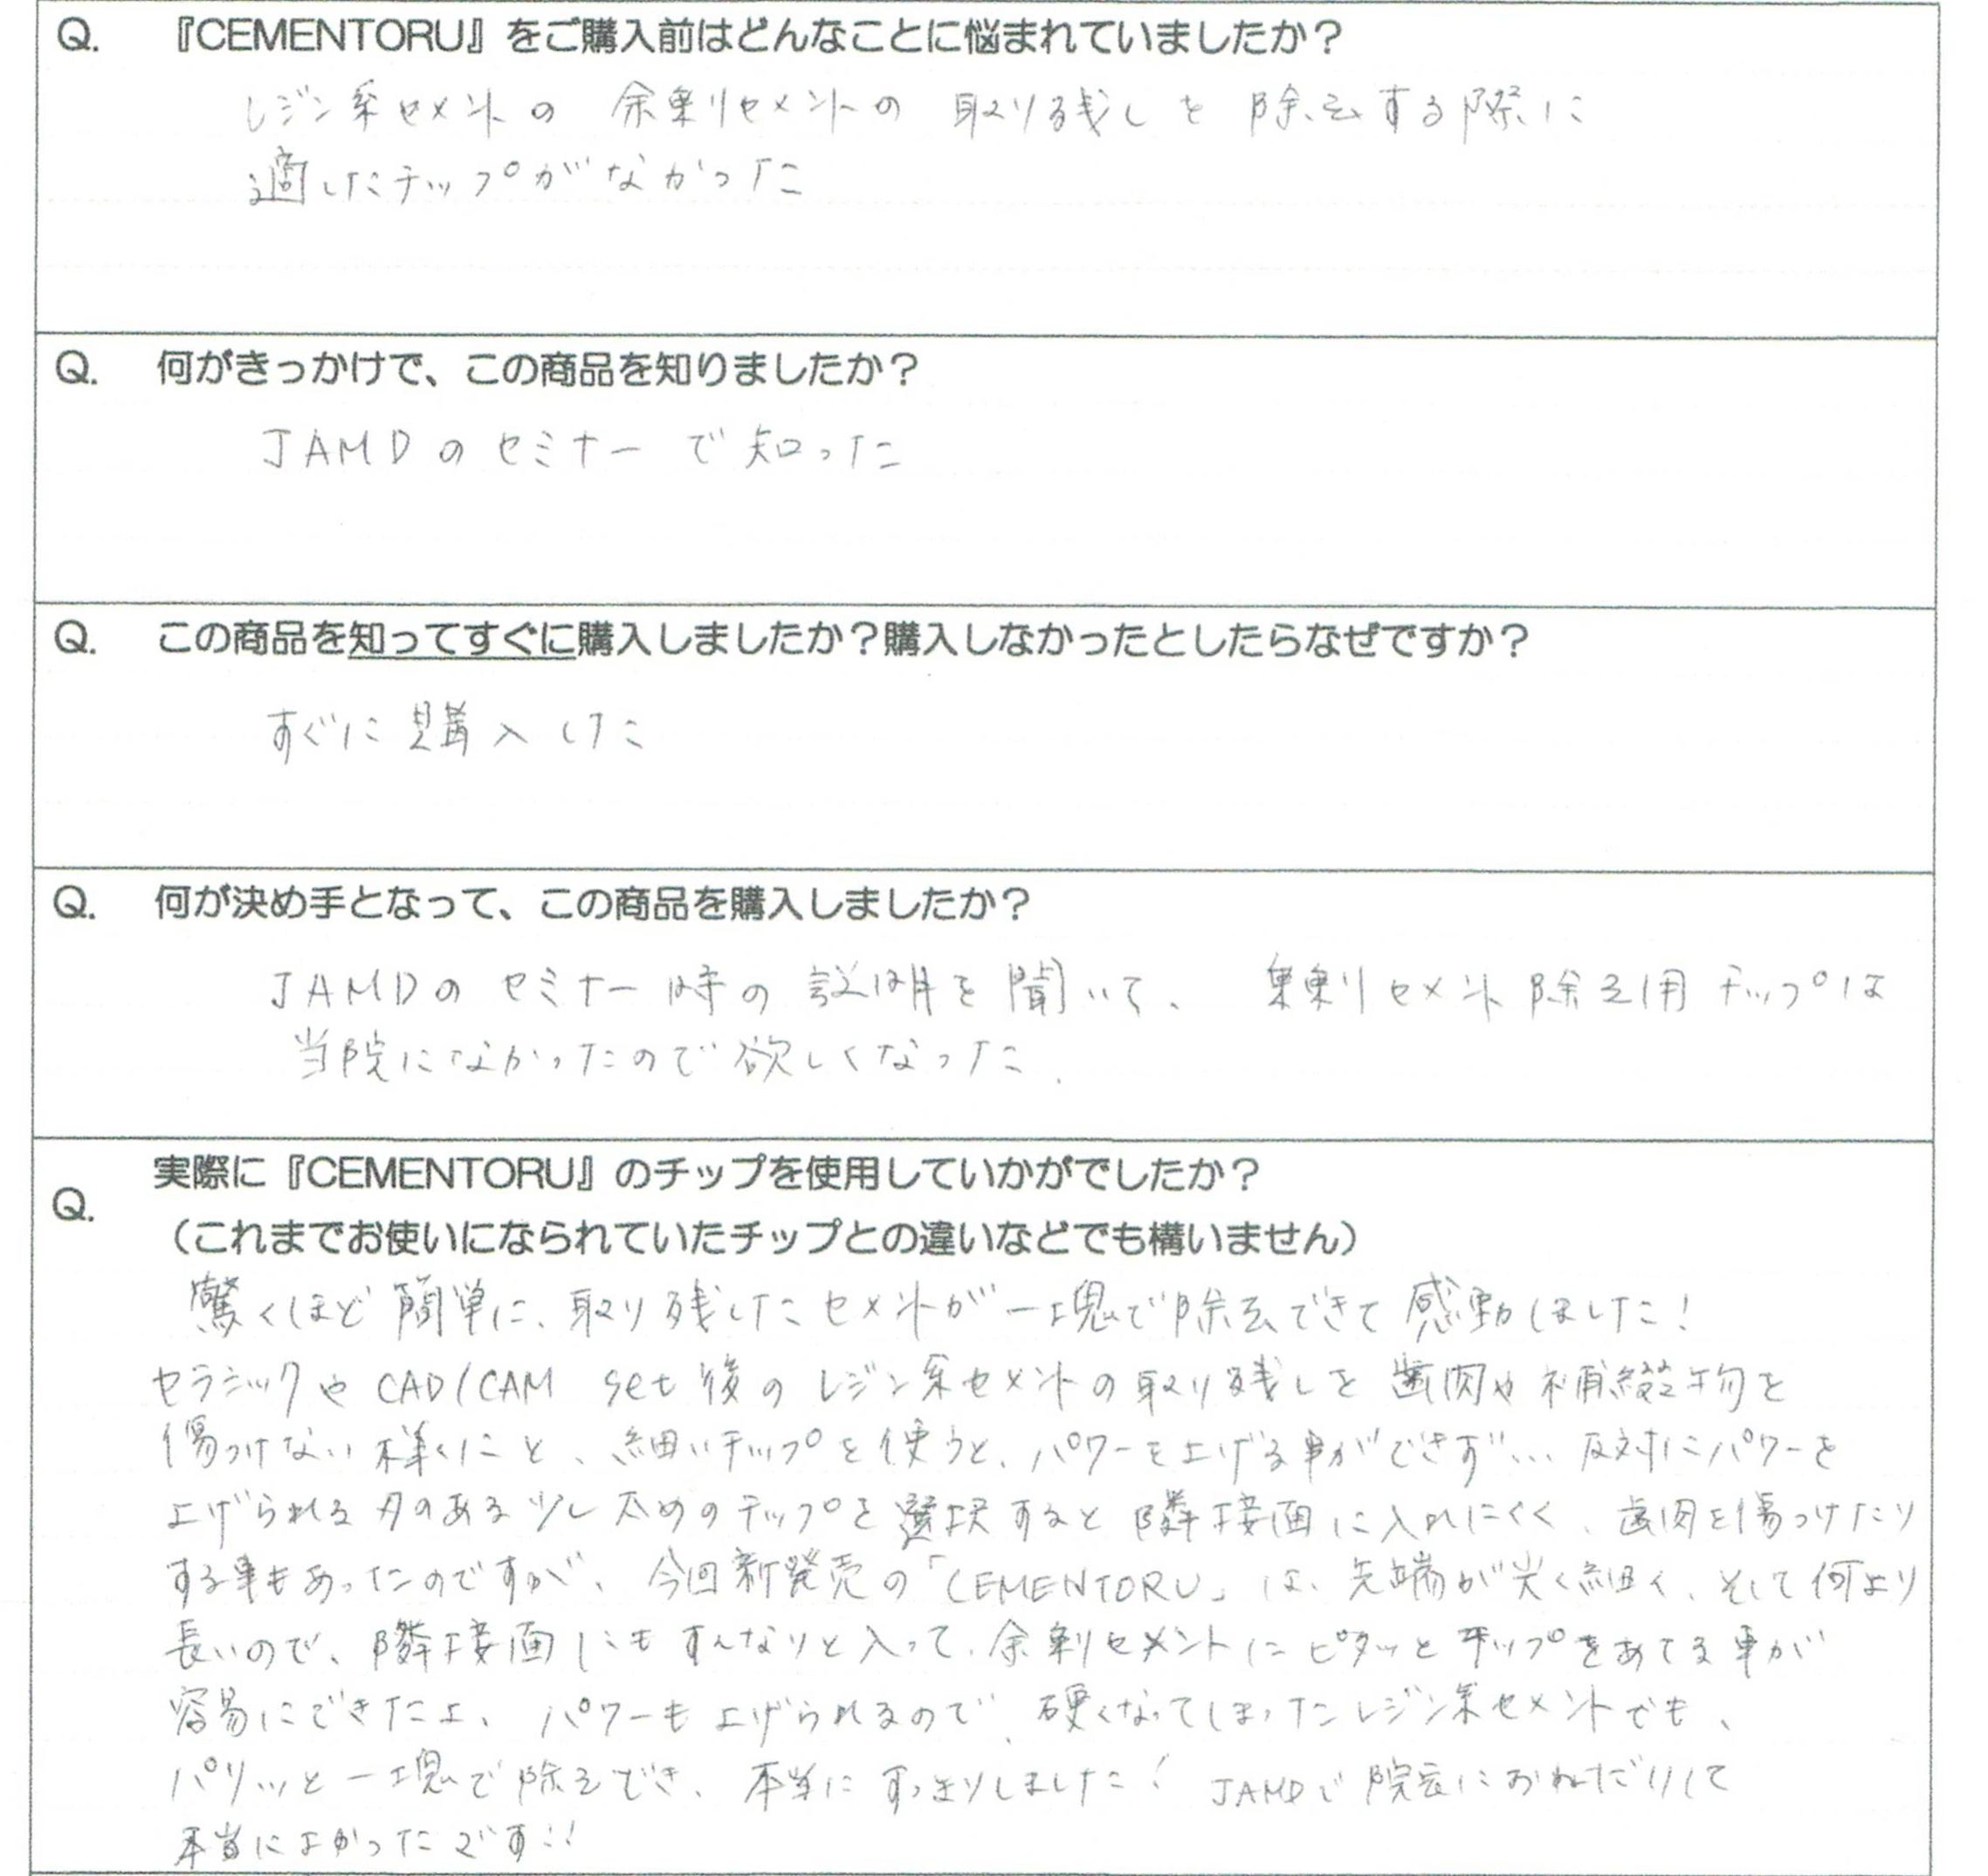 Q. 『CEMENTORU』をご購入前はどんなことに悩まれていましたか？
レジン系セメントの 余剰セメントの 取り残しを 除去する際に
適したチップがなかった
Q. 何がきっかけで、この商品を知りましたか？
JAMDのセミナーで知った
Q. この商品を知ってすぐに購入しましたか？購入しなかったとしたらなぜですか？
すぐに購入した
Q. 何が決め手となって、この商品を購入しましたか？
JAMDのセミナー時の説明を聞いて、 剰セメント除去用チップは
当院になかったので欲しくなった.
Q. 実際に『CEMENTORU』のチップを使用していかがでしたか？
（これまでお使いになられていたチップとの違いなどでも構いません）
驚くほど簡単に、取り残したセメントが一塊で除去できて感動しました！
セラミックや CAD/CAM set後のレジン系セメントの取り残しを歯肉や補綴物を
傷つけない様にと、細いチップを使うと、パワーを上げる事ができず… 反対にパワーを
上げられる刃のある少し太めのチップを選択すると隣接面に入れにくく、歯肉を傷つけたり
する事もあったのですが、今回新発売の「CEMENTORU」は、先端が尖く細く、そして何より
長いので、隣接面にもすんなりと入って、余剰セメントにピタッとチップをあてる事が
容易にできた上、パワーも上げられるので、硬くなってしまったレジン系セメントでも、
パリッと一塊で除去でき、本当にすっきりしました！ JAMDで院長におねだりして
本当によかったです!!